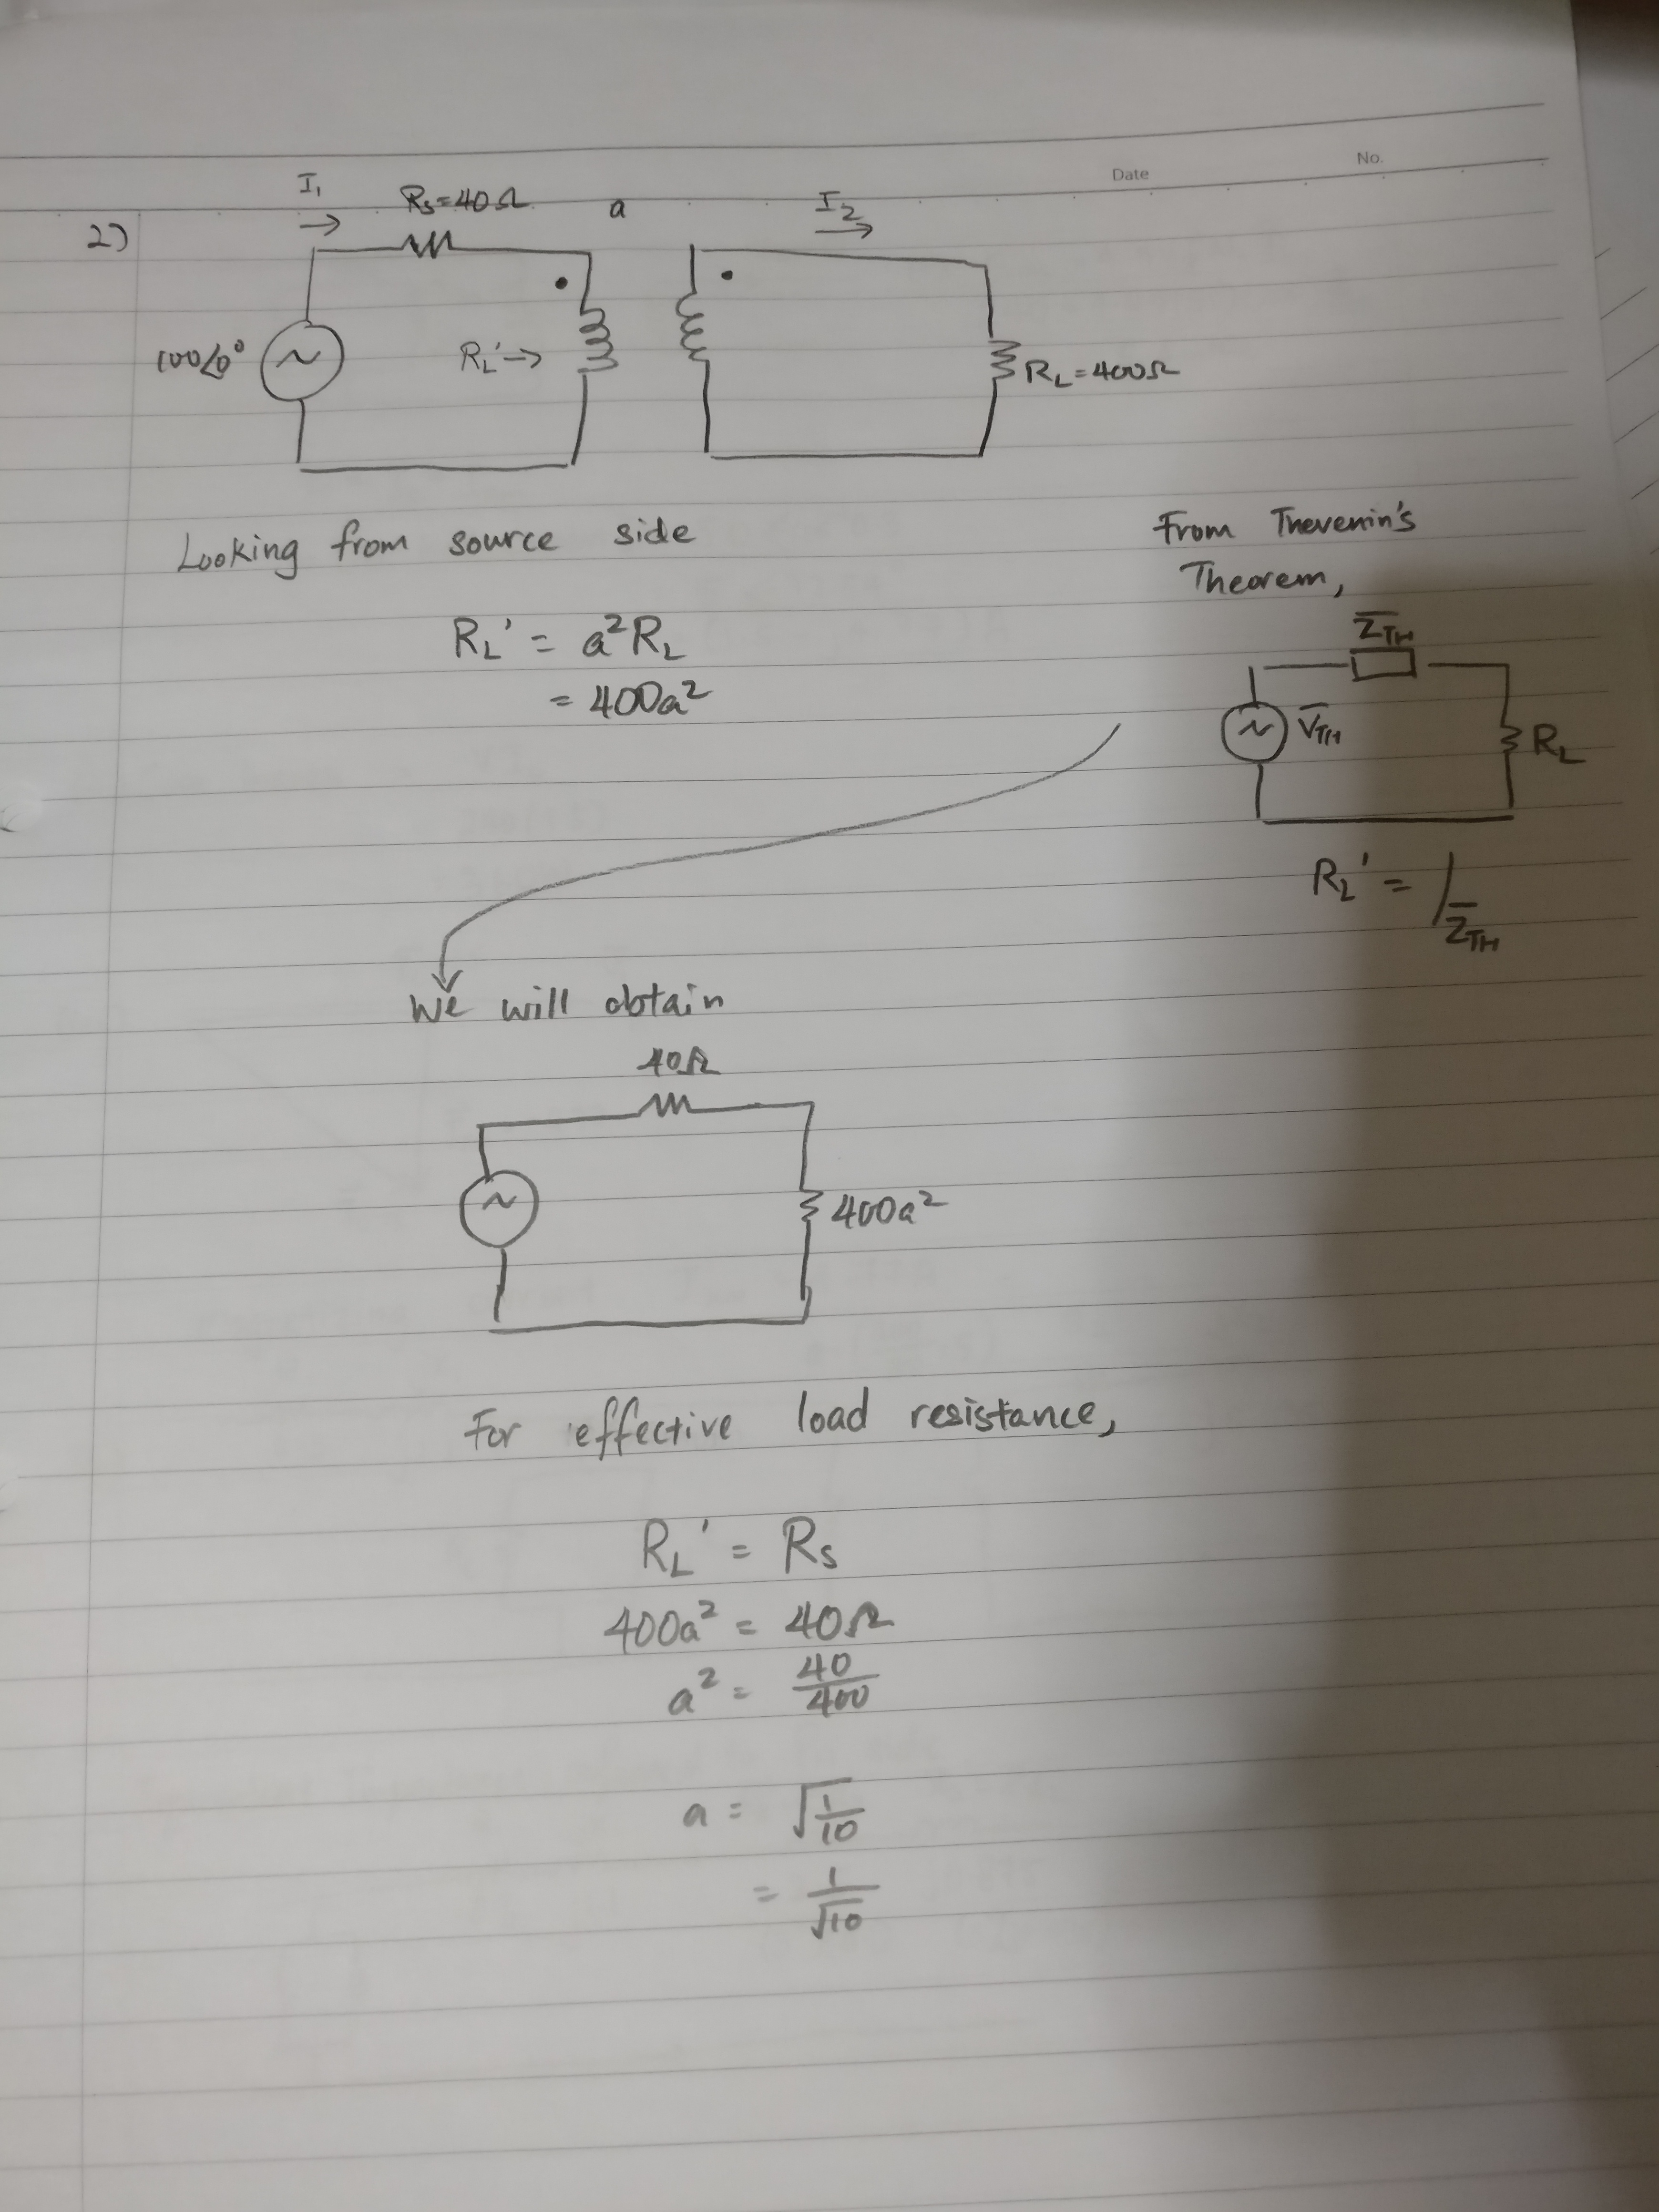 Date
No.
2)
I₁
Rs=40Ω
a
I₂
100∠0°
RL'→
RL=400Ω
Looking from source side
RL' = a²RL
= 400a²
From Thevenin's
Theorem,
Z̅TH
V̅TH
RL
RL' = /Z̅TH
We will obtain
40Ω
400a²
For effective load resistance,
RL' = Rs
400a² = 40Ω
a² = 40/400
a = √(1/10)
= 1/√10